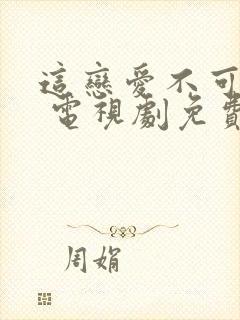 這戀愛不可
電視劇免費
周娟